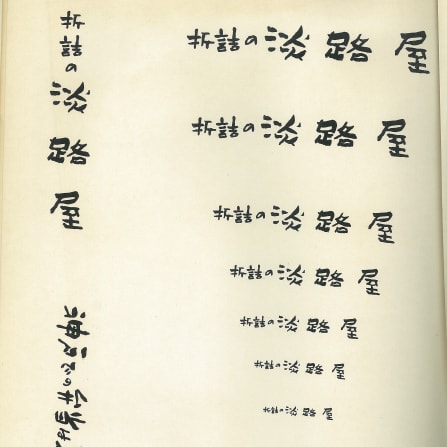 折詰の淡路屋
折詰の淡路屋
折詰の淡路屋
折詰の淡路屋
折詰の淡路屋
折詰の淡路屋
折詰の淡路屋
折詰の淡路屋